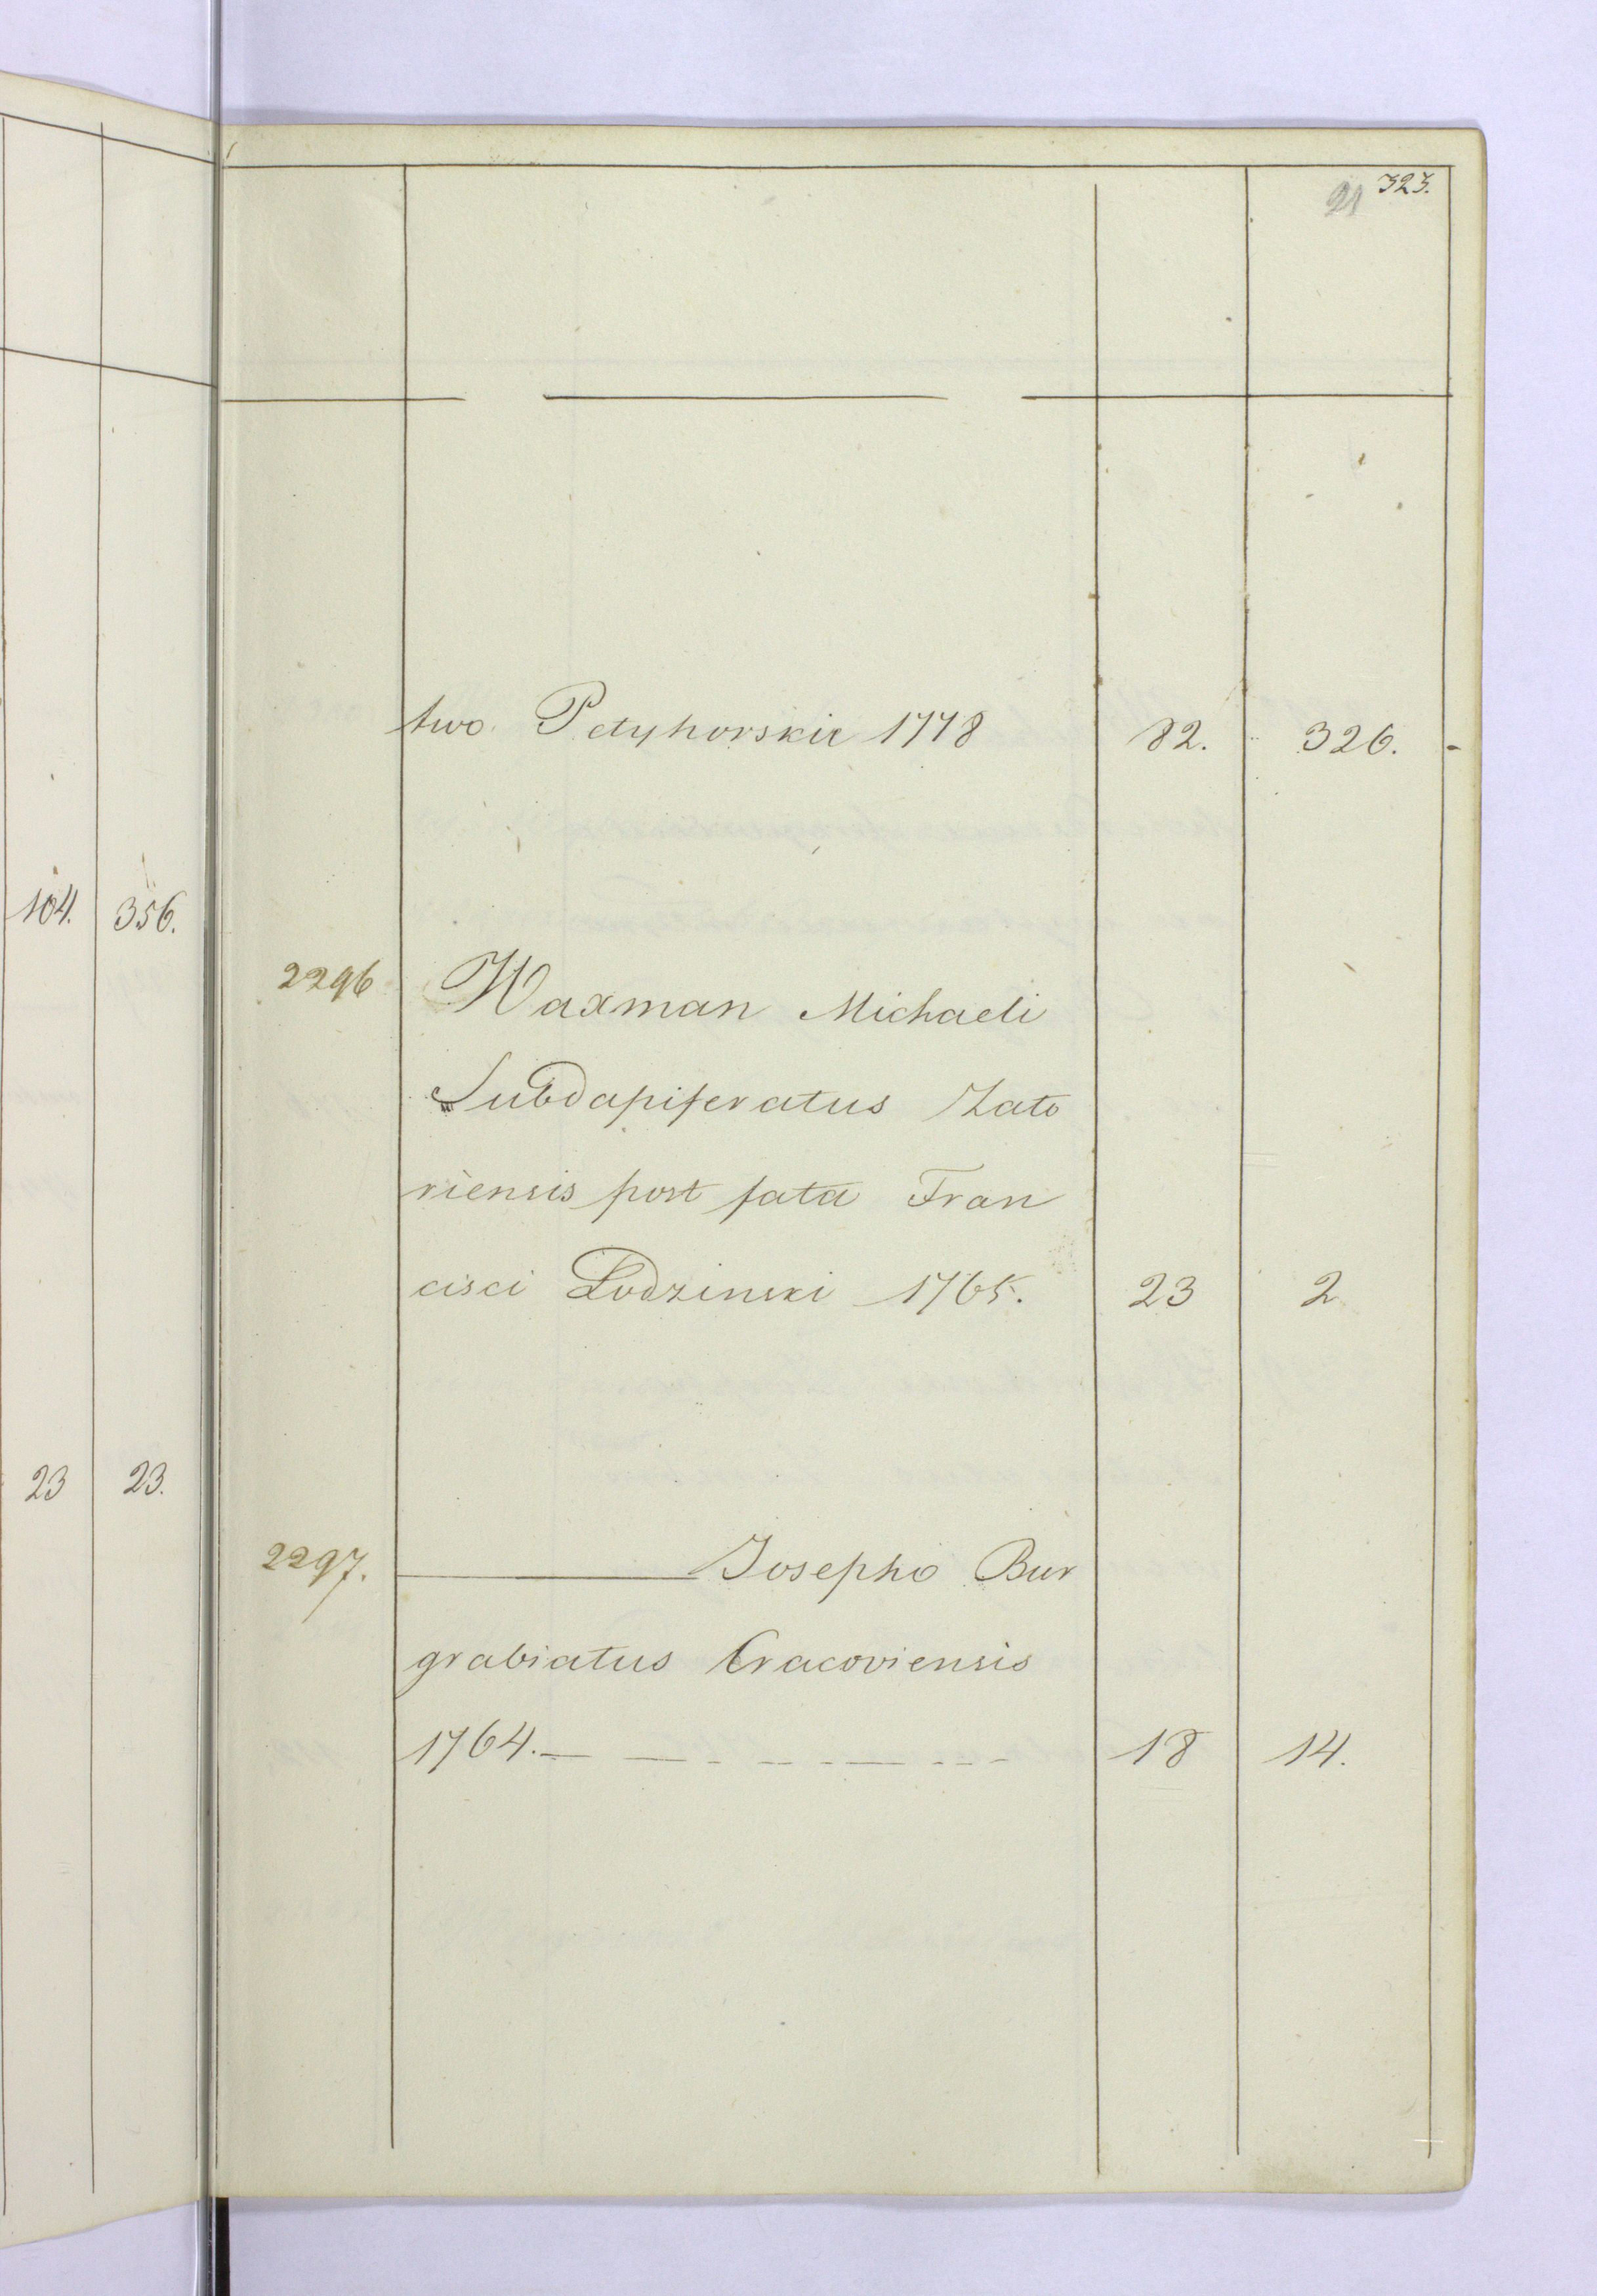 323.
21
two Petyhorskie 1778 82. 326.
104. 356.
2296 Waxman Michaeli
Subdapiferatus Zato
riensis post fata Fran
cisci Lodzinski 1765. 23 2
23 23.
2297. Josepho Bur
grabiatus Cracoviensis
1764. 18 14.